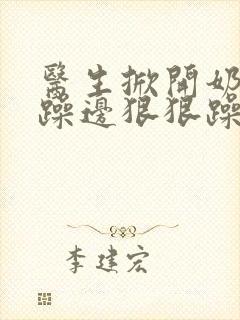 醫生掀開奶
躁邊狠狠躁
李建宏